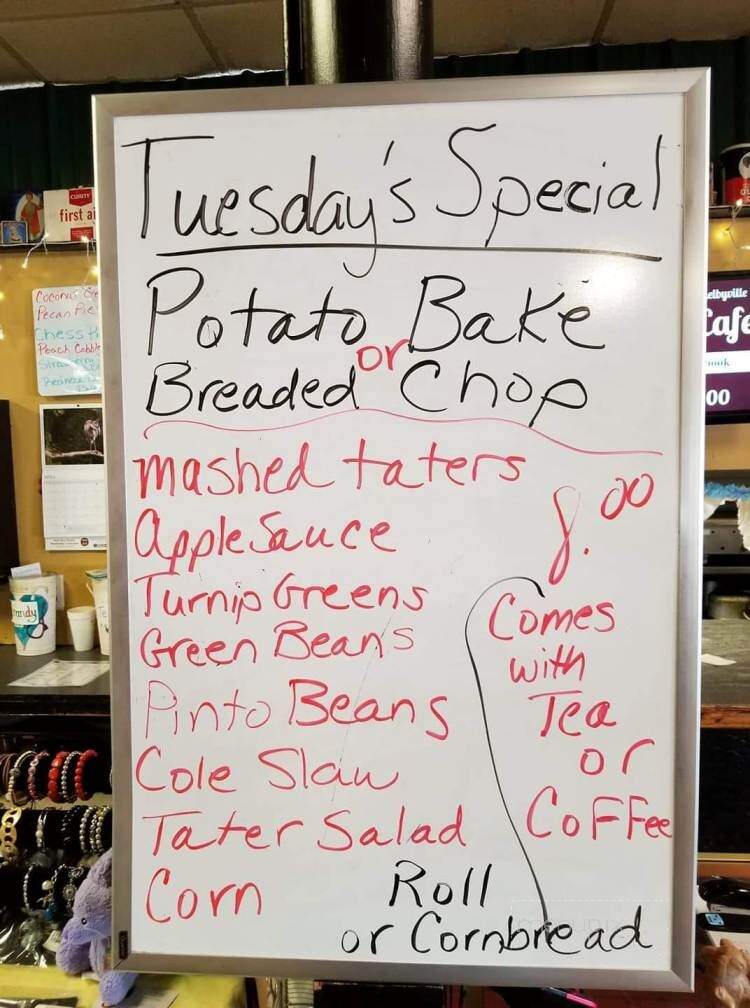 Tuesday's Special
Potato Bake
or
Breaded Chop
mashed taters
8.00
Apple Sauce
Turnip Greens
Green Beans
Pinto Beans
Cole Slaw
Tater Salad
Corn
Comes
with
Tea
or
CoFFee
Roll
or Cornbread
CURITY
first ai
Pecan Pie
Chess
Peach Cobbl
elbyville
Cafe
00